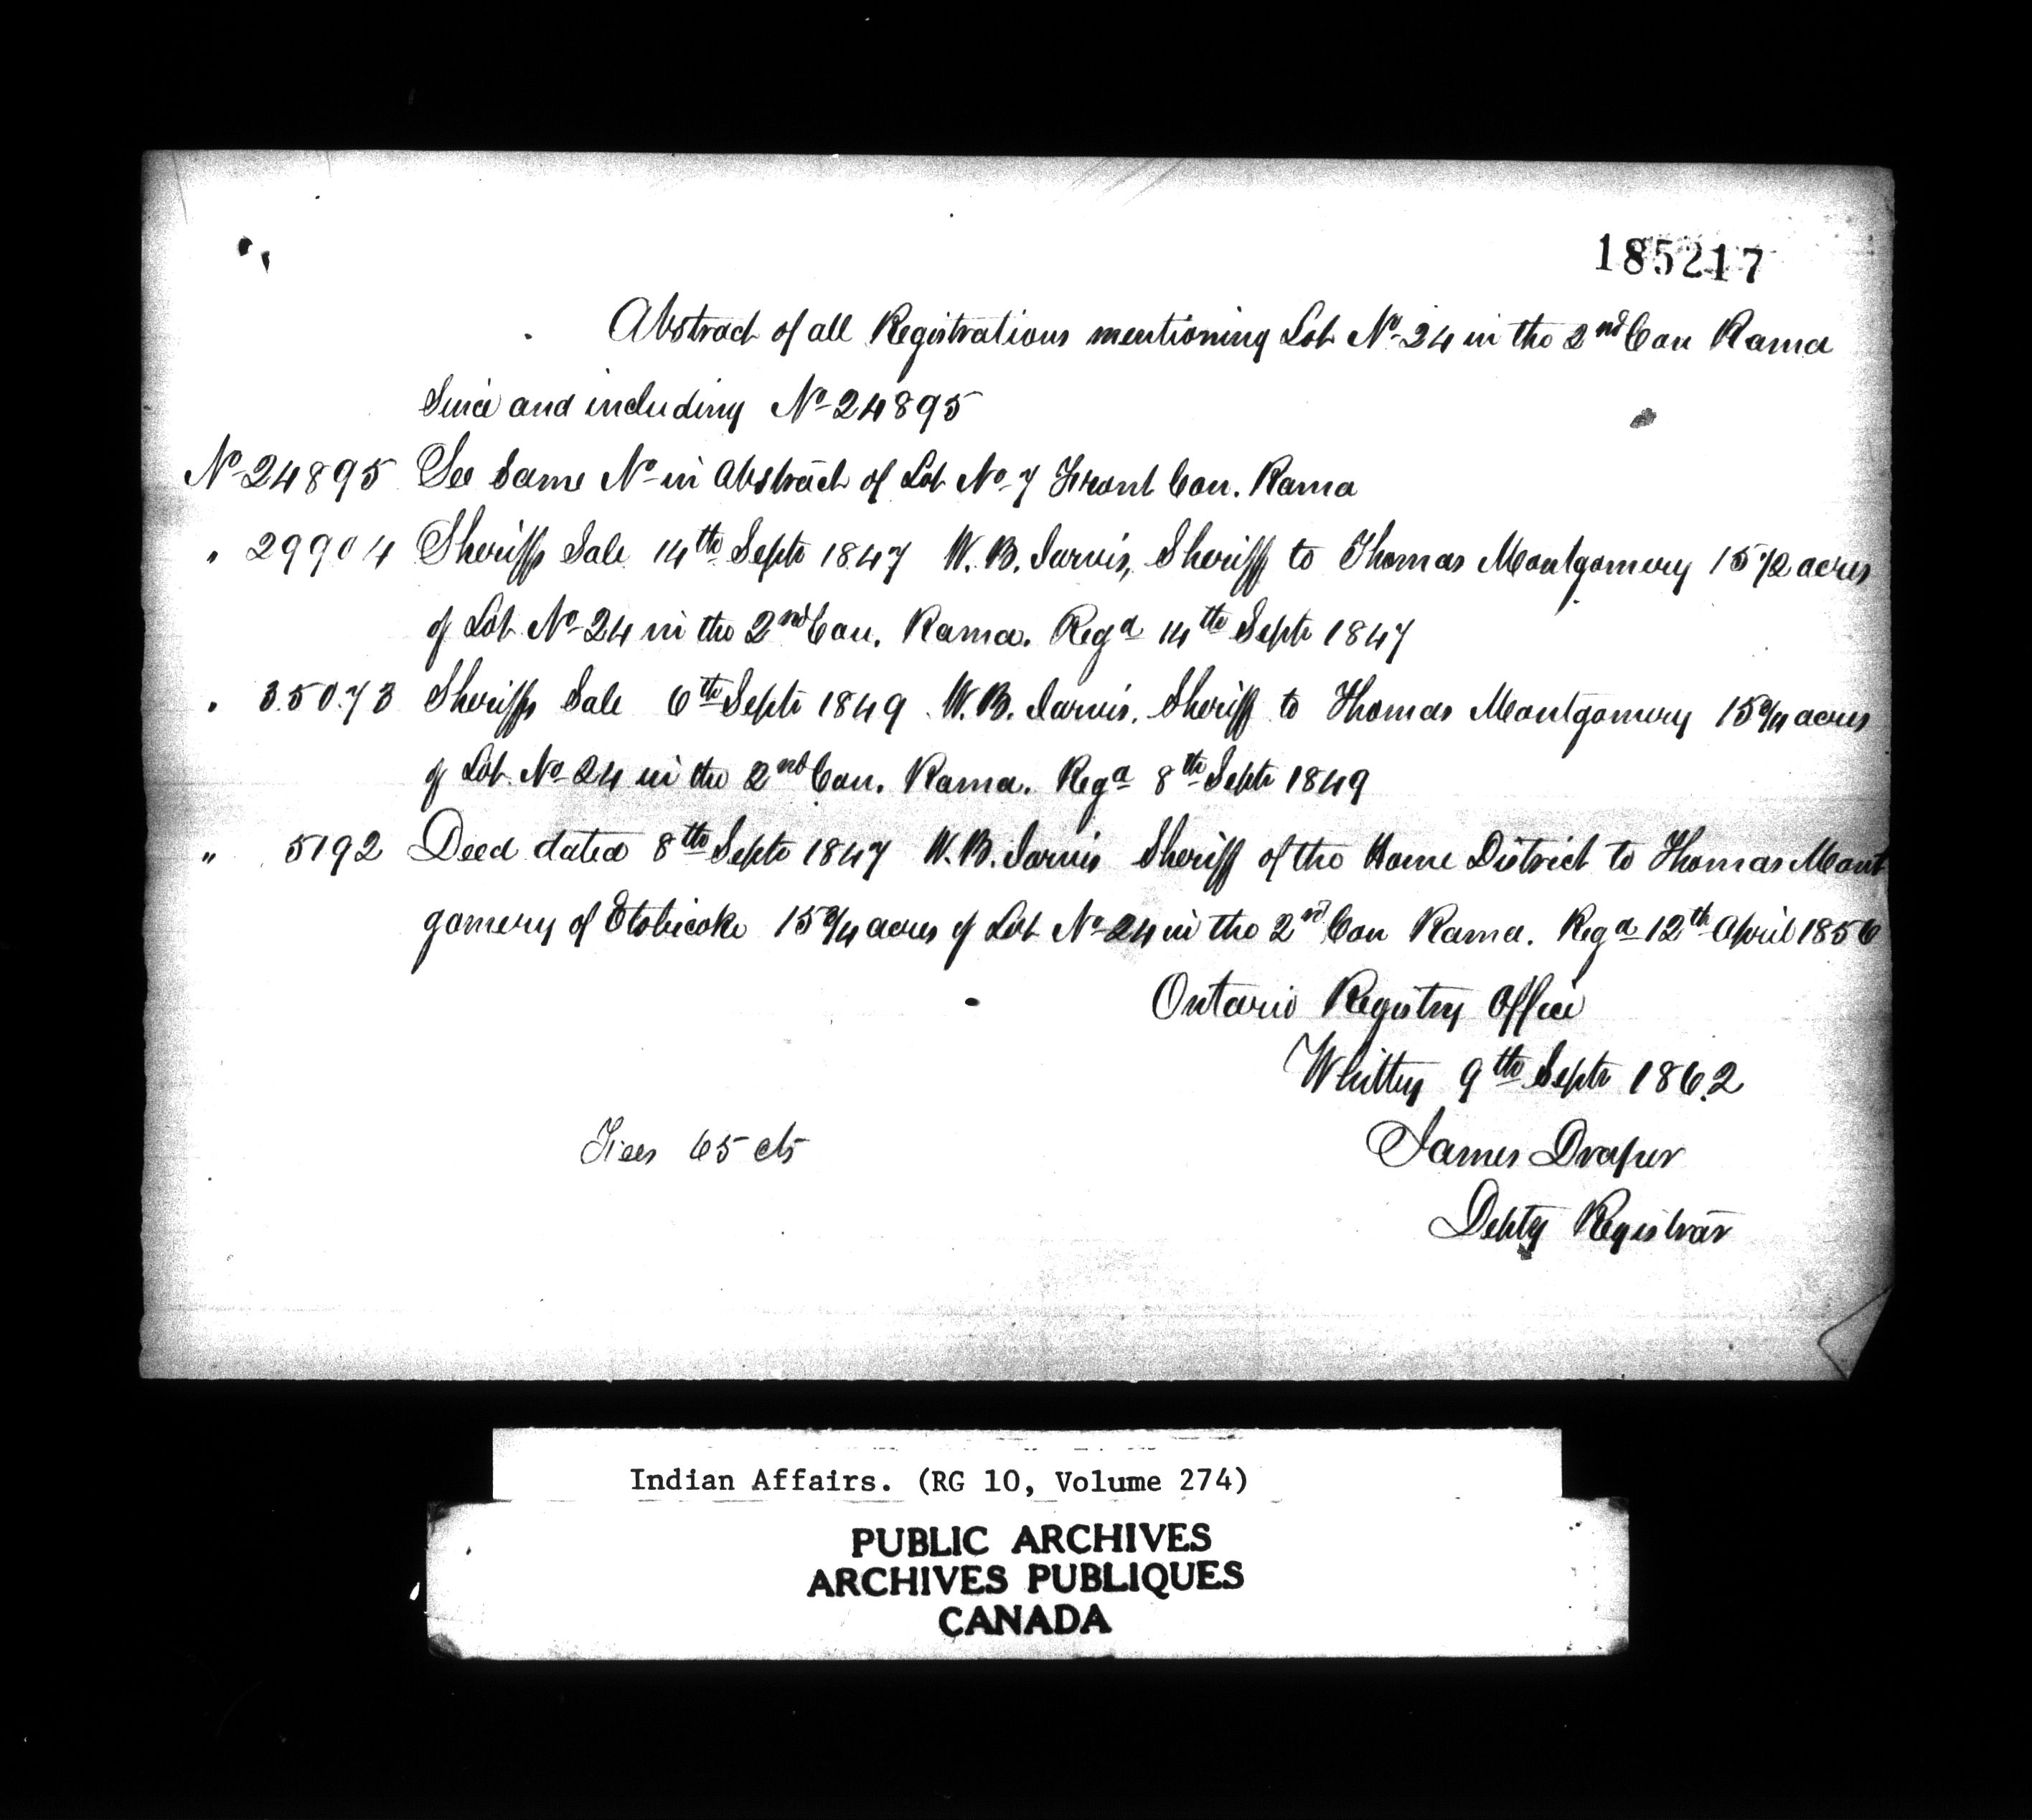 185217
Abstract of all Registrations mentioning Lot No 24 in the 2nd Con Rama
Since and including No 24895
No 24895 See Same No in Abstract of Lot No 7 Front Con. Rama
" 29904 Sheriffs Sale 14th Septr 1847 W. B. Jarvis, Sheriff to Thomas Montgomery 15 1/2 acres
of Lot No 24 in the 2nd Con. Rama. Regd 14th Septr 1847
" 35073 Sheriffs Sale 6th Septr 1849 W. B. Jarvis. Sheriff to Thomas Montgomery 15 3/4 acres
of Lot No 24 in the 2nd Con. Rama. Regd 8th Septr 1849
" 5192 Deed dated 8th Septr 1847 W. B. Jarvis Sheriff of the Home District to Thomas Mont
gomery of Etobicoke 15 3/4 acres of Lot No 24 in the 2nd Con Rama. Regd 12th April 1856
Ontario Registry Office
Whitby 9th Septr 1862
Fees 65 cts
James Draper
Depty Registrar
Indian Affairs. (RG 10, Volume 274)
PUBLIC ARCHIVES
ARCHIVES PUBLIQUES
CANADA